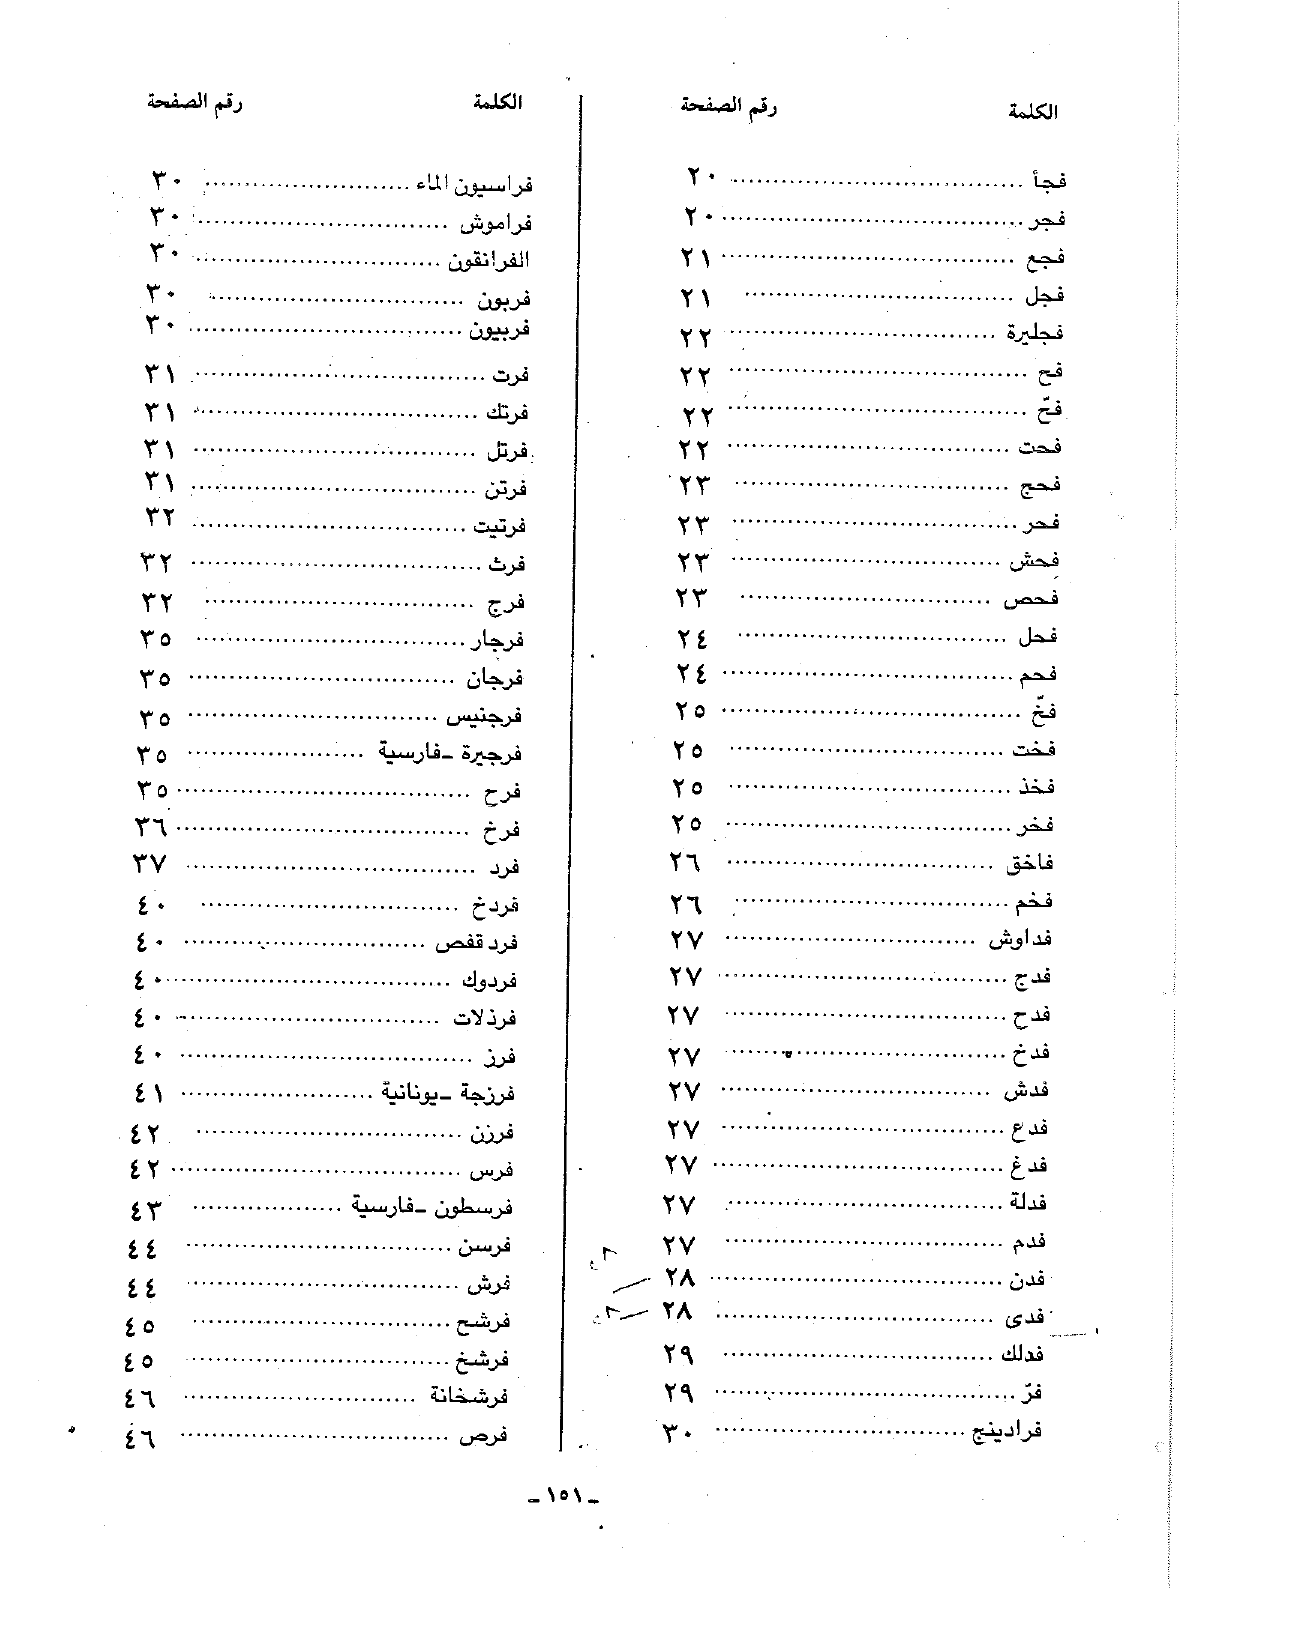 الكلمة رقم الصفحة
فجأ ٢٠
فجر ٢٠
فجع ٢١
فجل ٢١
فجليرة ٢٢
فح ٢٢
فحّ ٢٢
فحت ٢٢
فحج ٢٣
فحر ٢٣
فحش ٢٣
فحص ٢٣
فحل ٢٤
فحم ٢٤
فخّ ٢٥
فخت ٢٥
فخذ ٢٥
فخر ٢٥
فاخق ٢٦
فخم ٢٦
فداوش ٢٧
فدج ٢٧
فدح ٢٧
فدخ ٢٧
فدش ٢٧
فدع ٢٧
فدغ ٢٧
فدلة ٢٧
فدم ٢٧
فدن ٢٨
فدى ٢٨
فدلك ٢٩
فرّ ٢٩
فرادينج ٣٠
الكلمة رقم الصفحة
فراسيون الماء ٣٠
فراموش ٣٠
الفرانقون ٣٠
فربون ٣٠
فربيون ٣٠
فرت ٣١
فرتك ٣١
فرتل ٣١
فرتن ٣١
فرتيت ٣٢
فرث ٣٢
فرج ٣٢
فرجار ٣٥
فرجان ٣٥
فرجنيس ٣٥
فرجيرة ـ فارسية ٣٥
فرح ٣٥
فرخ ٣٦
فرد ٣٧
فردخ ٤٠
فرد قفص ٤٠
فردوك ٤٠
فرذلات ٤٠
فرز ٤٠
فرزجة ـ يونانية ٤١
فرزن ٤٢
فرس ٤٢
فرسطون ـ فارسية ٤٣
فرسن ٤٤
فرش ٤٤
فرشح ٤٥
فرشخ ٤٥
فرشخانة ٤٦
فرص ٤٦
ـ ١٥١ ـ